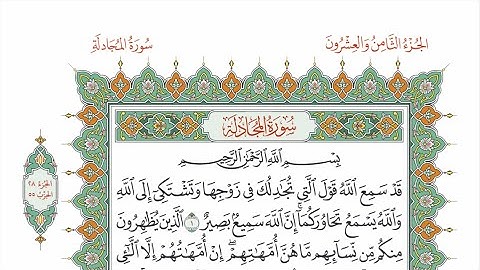 الجُزْءُ الثَّامِنُ وَالعِشْرُونَ
سُورَةُ المُجَادلَةِ
سُورَةُ المُجَادلَةِ
بِسْمِ اللَّهِ الرَّحْمَٰنِ الرَّحِيمِ
قَدْ سَمِعَ اللَّهُ قَوْلَ الَّتِي تُجَٰدِلُكَ فِي زَوْجِهَا وَتَشْتَكِي إِلَى اللَّهِ
وَاللَّهُ يَسْمَعُ تَحَاوُرَكُمَا إِنَّ اللَّهَ سَمِيعٌ بَصِيرٌ ١ الَّذِينَ يُظَٰهِرُونَ
مِنكُم مِّن نِّسَآئِهِم مَّا هُنَّ أُمَّهَٰتِهِمْ إِنْ أُمَّهَٰتُهُمْ إِلَّا الَّٰٓـِٔي
الجُزْءُ ٢٨
الحِزْبُ ٥٥